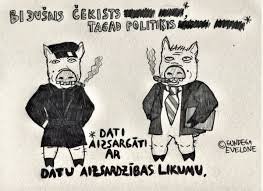 BIJUŠAIS ČEKISTS *,
TAGAD POLITIĶIS
* DATI
AIZSARGĀTI
AR
DATU AIZSARDZĪBAS LIKUMU.
©GUNDEGA
EVELONE